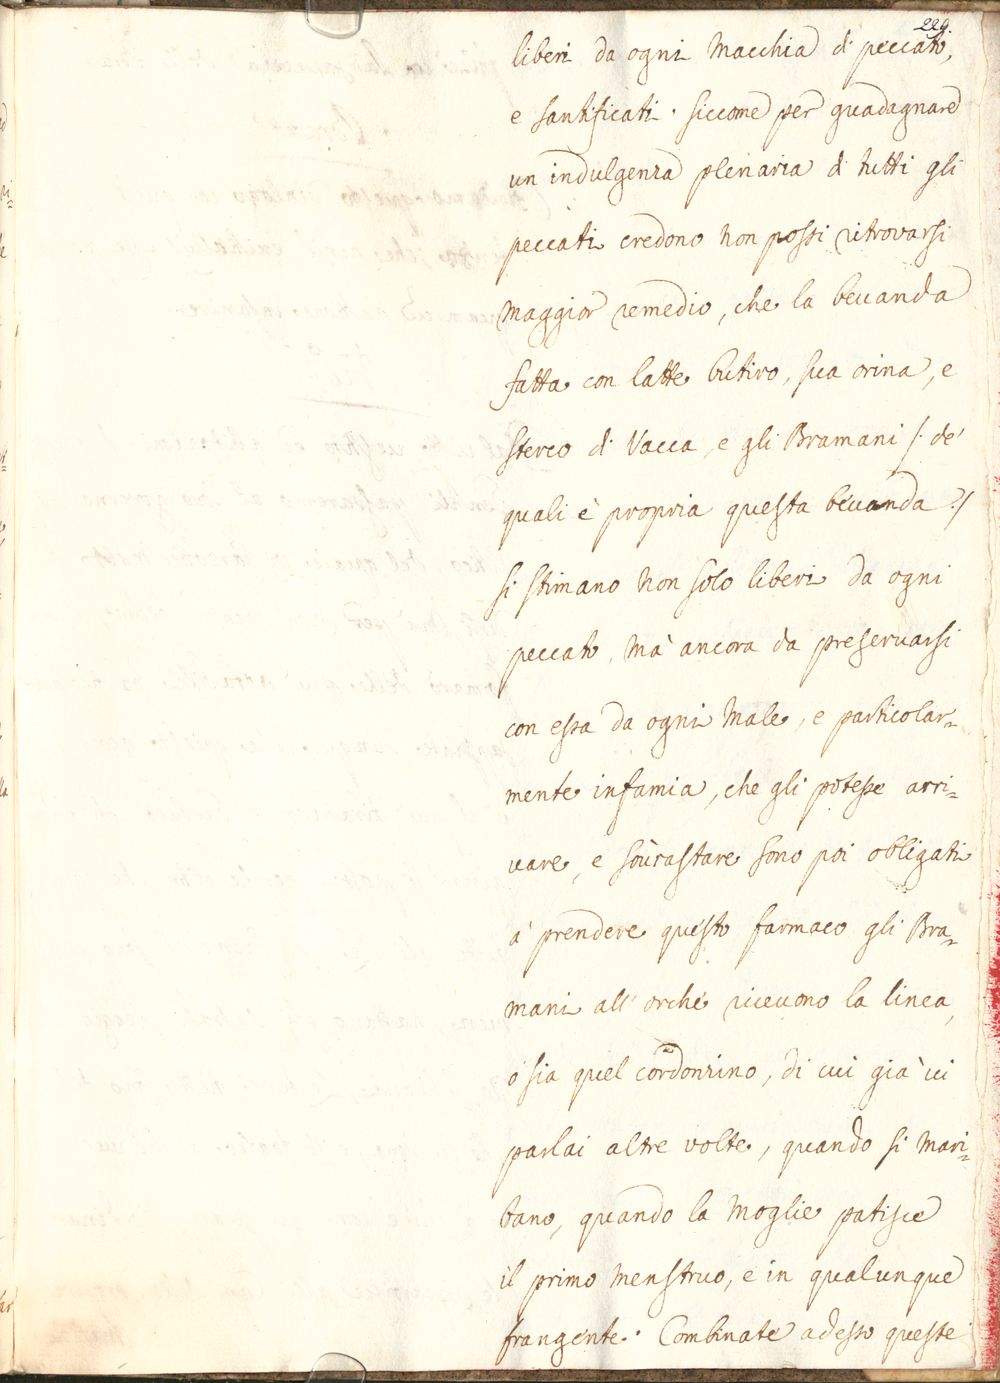 229.
liberi da ogni Macchia di peccato,
e santificati. siccome per guadagnare
un indulgenza plenaria di tutti gli
peccati credono non possi ritrovarsi
maggior remedio, che la bevanda
fatta con latte butiro, sua orina, e
sterco di Vacca, e gli Bramani /: de'
quali è propria questa bevanda :/
si stimano non solo liberi da ogni
peccato, mà ancora da preservarsi
con essa da ogni Male, e particolar=
mente infamia, che gli potesse arri=
vare, e sourastare sono poi obligati
à prendere questo farmaco gli Bra=
mani all' orche ricevono la linea,
ò sia quel cordonzino, di cui già vi
parlai altre volte, quando si mari=
tano, quando la moglie patisce
il primo menstruo, e in qualunque
frangente. Combinate adesso queste